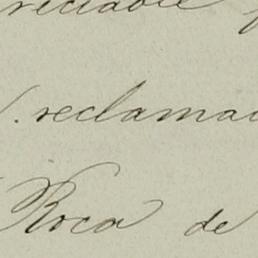 reciable
. reclamac
Roca de